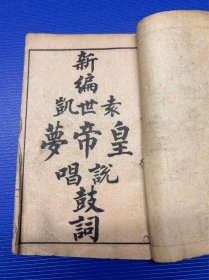 新編
袁世凱
皇帝夢
說唱
鼓詞